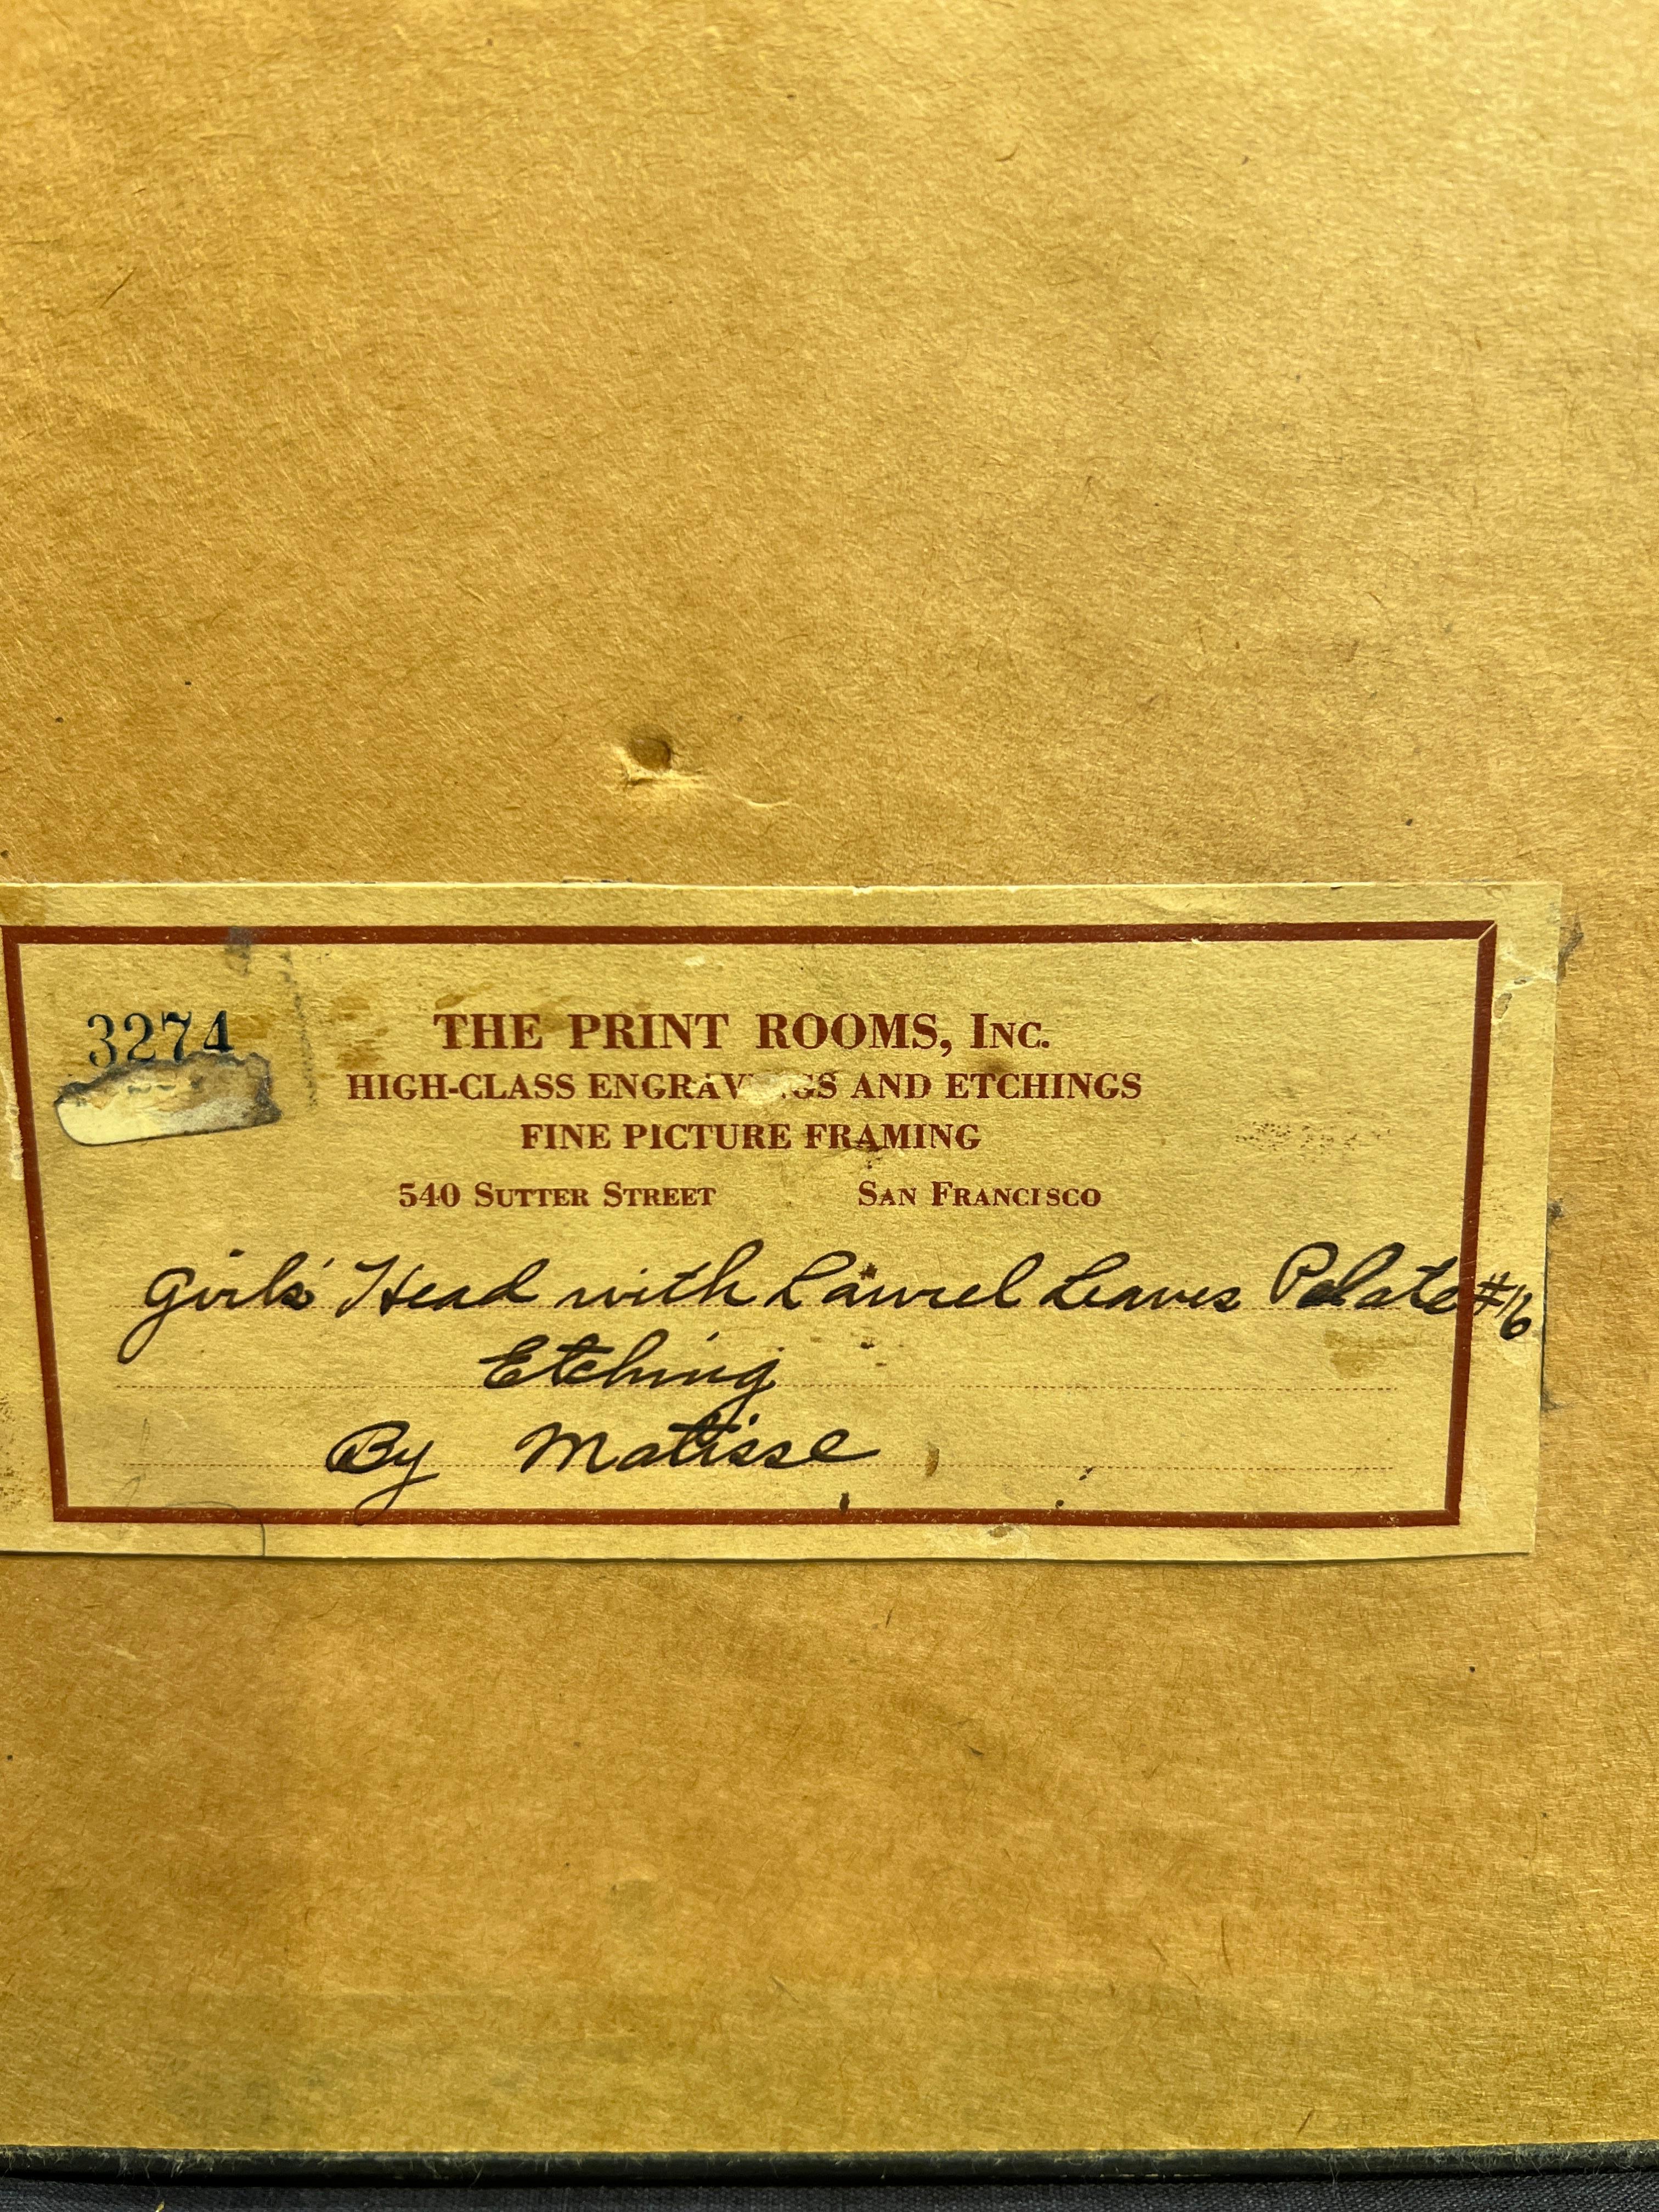 3274
THE PRINT ROOMS, INC.
HIGH-CLASS ENGRAV GS AND ETCHINGS
FINE PICTURE FRAMING
540 SUTTER STREET SAN FRANCISCO
Girls' Head with Laurel Leaves Pelate #16
Etching
By Matisse